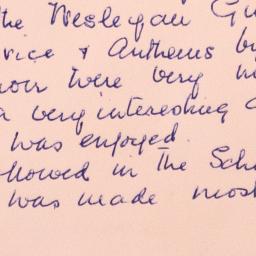 the Wesleyan Gu
vice & Anthems by
were very
a very interesting
was enjoyed.
llowed in The Sch
was made most